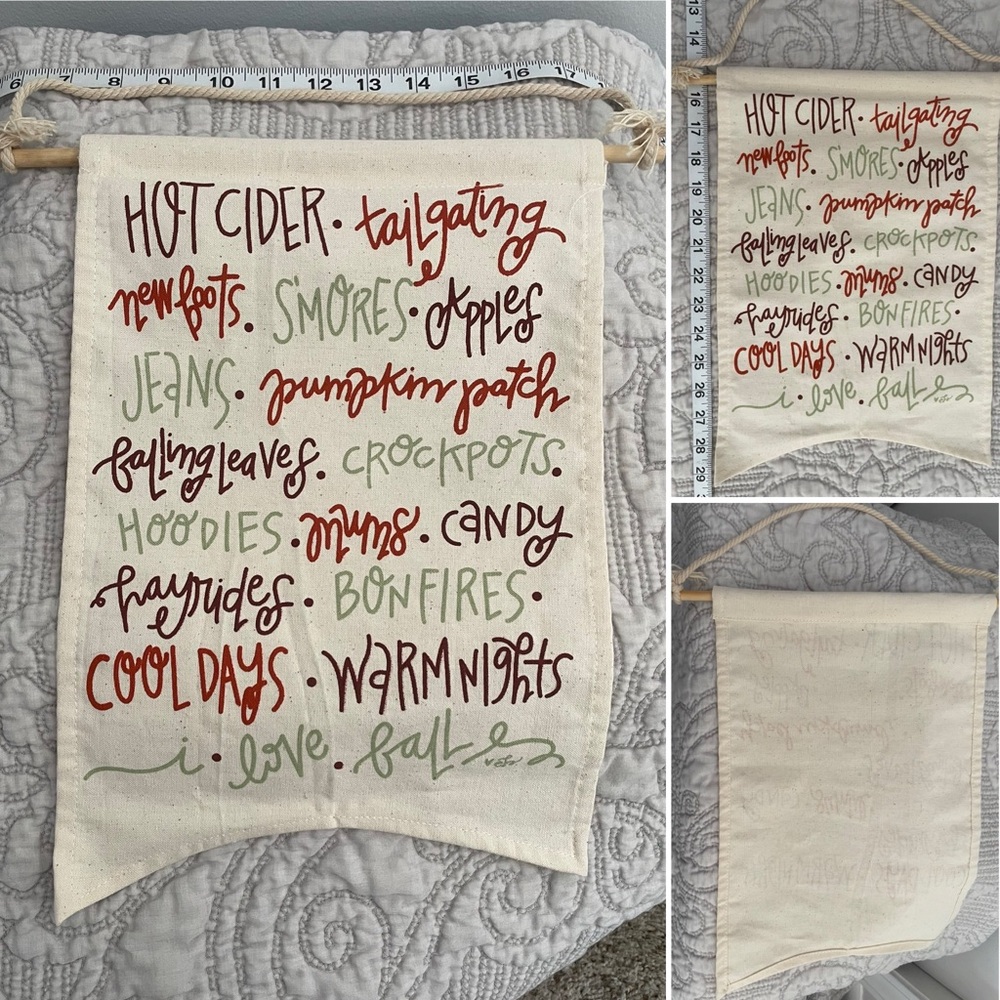 6 7 8 9 10 11 12 13 14 15 16 17
HOT CIDER • tailgating
new boots. S'MORES • Apples
JEANS • pumpkin patch
falling leaves. CROCKPOTS.
HOODIES • mums • CANDY
hayrides • BONFIRES •
COOL DAYS • WARM NIGHTS
i • love • fall
13
14
16
17
18
19
20
21
22
23
24
25
26
27
28
29
HOT CIDER • tailgating
new boots. S'MORES • Apples
JEANS • pumpkin patch
falling leaves. CROCKPOTS.
HOODIES • mums • CANDY
hayrides • BONFIRES •
COOL DAYS • WARM NIGHTS
i • love • fall